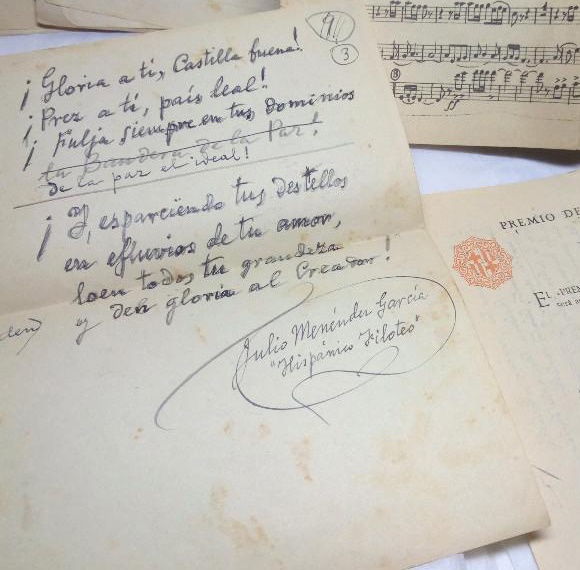 9
3
¡Gloria a ti, Castilla buena!
¡Prez a ti, país leal!
¡Fulja siempre en tus dominios
tu Bandera de la Paz!
de la paz el ideal!
¡Y, esparciendo tus destellos
en efluvios de tu amor,
loen todos tu grandeza
y den gloria al Creador!
den)
Julio Menéndez García
"Hispánico Filoteo"
8
ff
PREMIO DE
EL «PREM
será